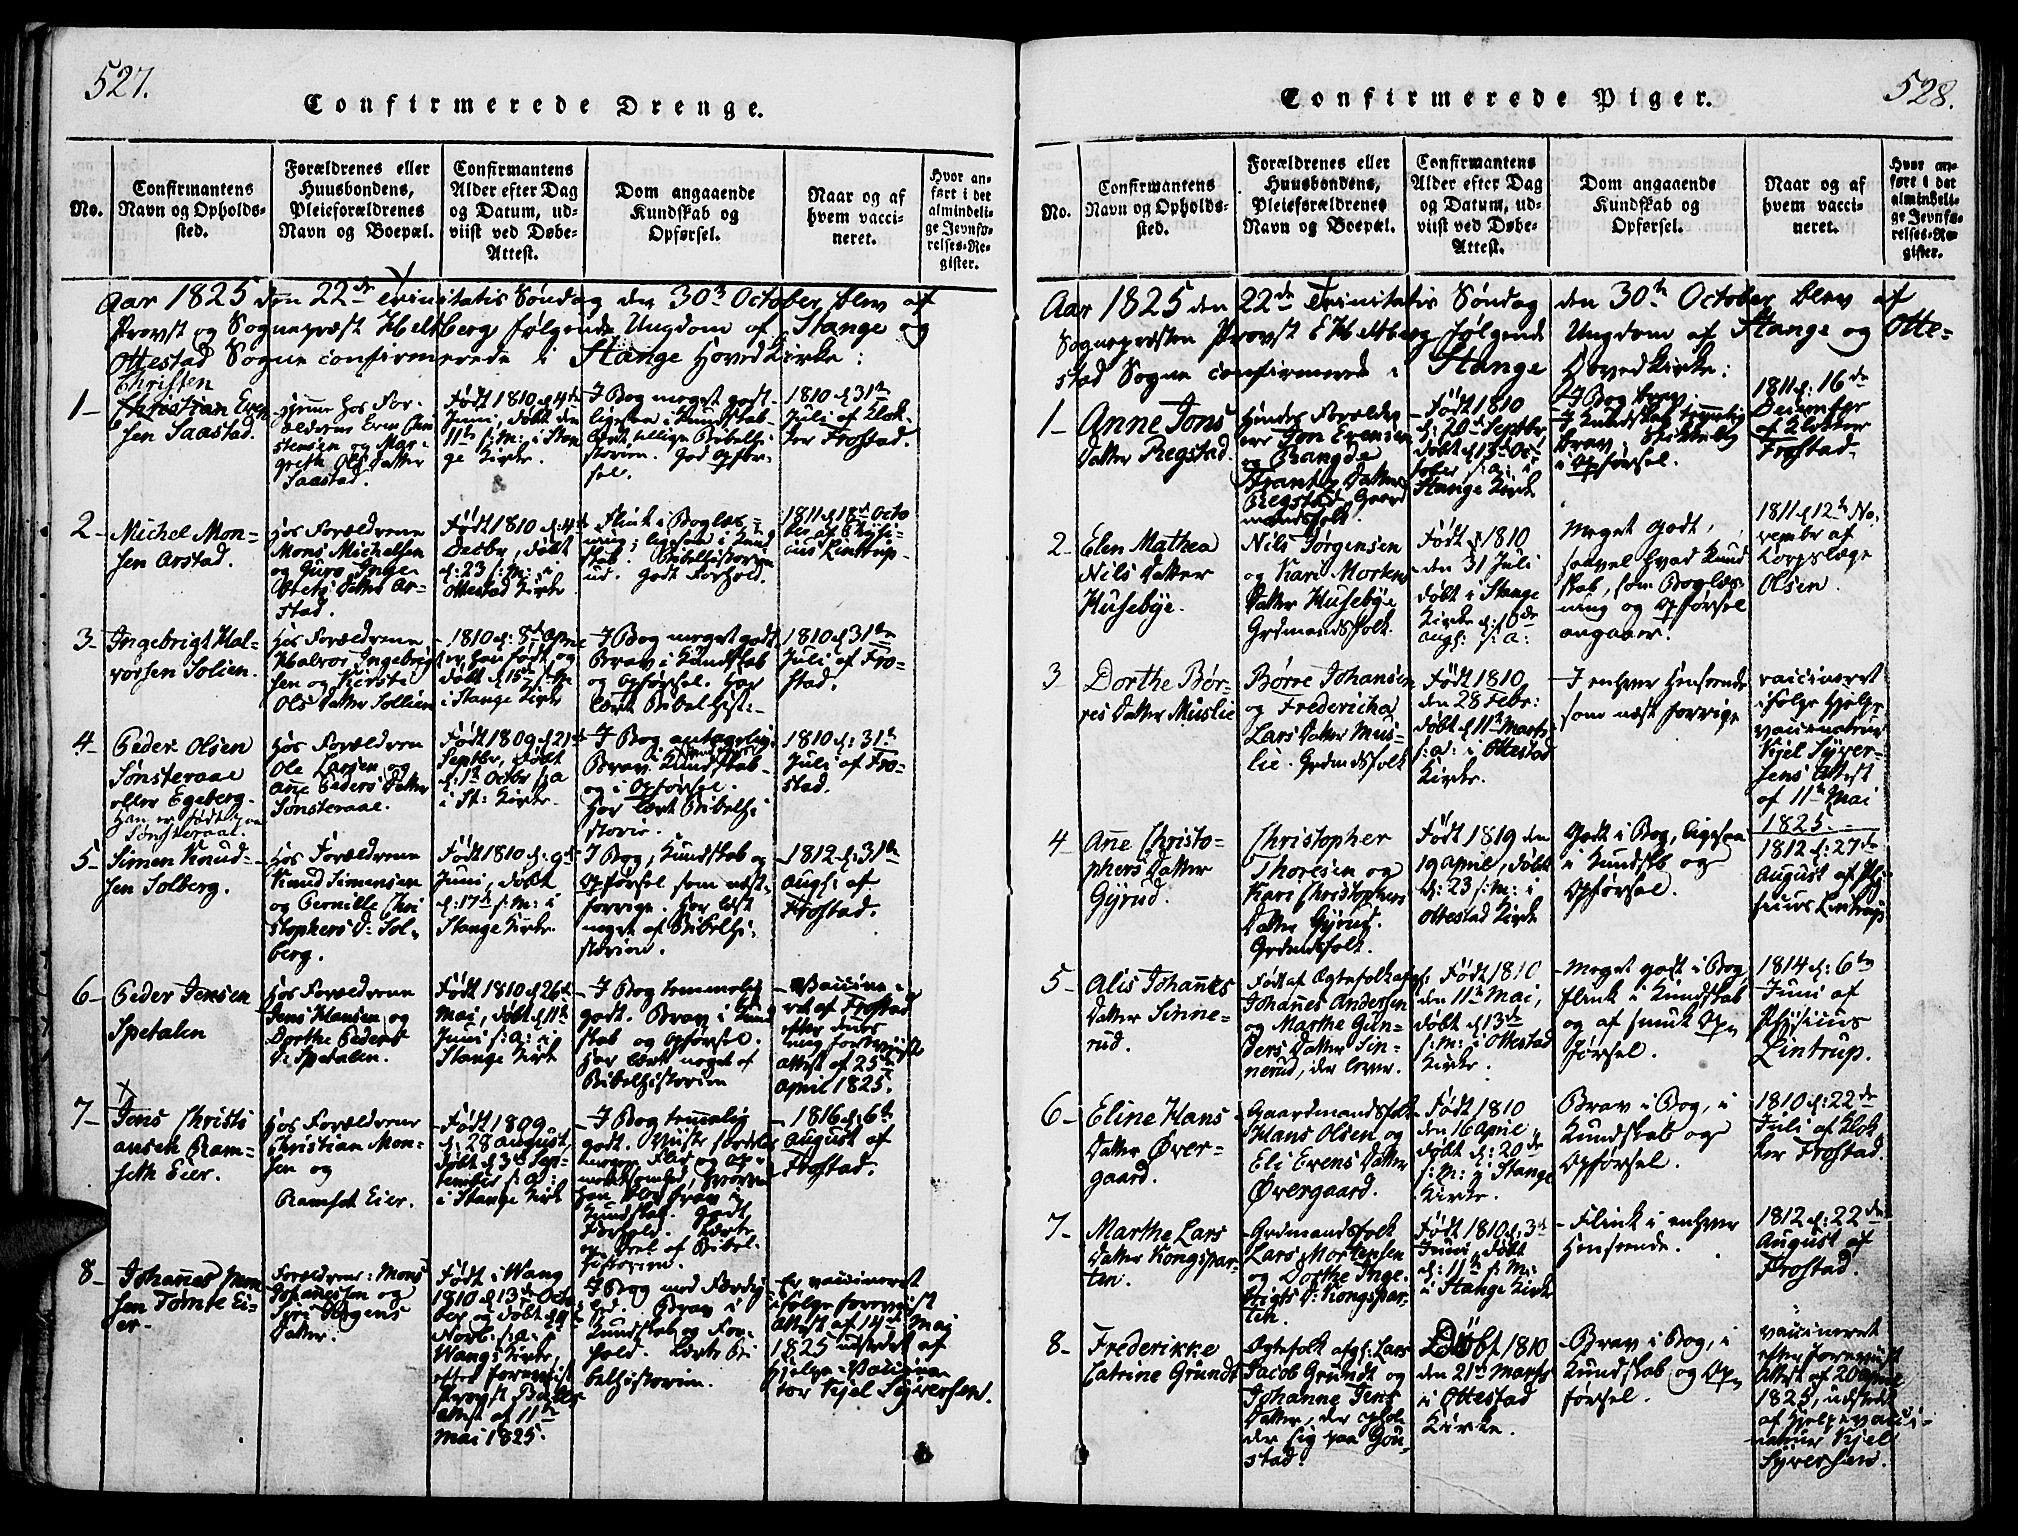 527.
Confirmerede Drenge.
No.
Confirmantens
Navn og Opholds-
sted.
Forældrenes eller
Huusbondens,
Pleieforældrenes
Navn og Boepæl.
Confirmantens
Alder efter Dag
og Datum, ud-
viist ved Døbe-
Attest.
Dom angaaende
Kundskab og
Opførsel.
Naar og af
hvem vacci-
neret.
Hvor an-
ført i det
almindeli-
ge Jevnfø-
relses-Re-
gister.
Aar 1825 den 22de Trinitatis Søndag den 30te October blev af
Provst og Sognepræst Heltberg følgende Ungdom af Stange og
Ottestad Sogne confirmerede i Stange Hovedkirke:
1-
Christen
Christian Even
sen Saastad.
hjemme hos For-
ældrene Even Chri
stensen og Mar-
grethe Ols Datter
Saastad.
Født 1810 d. 4de
Juni, døbt den
11te s: M: i Stan
ge Kirke.
I Bog meget godt
ligesaa i Kundskab
lært tillige Bibelhi-
storien. God Opfør-
sel.
1810 d 31te
Juli af Klok-
ker Frostad.
2-
Michel Mon-
sen Arstad.
hos Forældrene
Mons Michelsen
og Guro Inge-
brets Datter Ar-
stad.
Født 1810 d: 4de
Decbr, døbt
d: 23 s: M: i
Ottestad Kirke
Flink i Boglæs-
ning; ligesaa i Kund
skab. Bibelhistorien
ud. Godt Forhold.
1811 d 18de Octo
ber af Physi-
cus Lintrup.
3-
Ingebrigt Hal-
vorsen Solien.
hos Forældrene
Halvor Ingebrigt
sen og Kirsti
Ols Datter Sollien
1810 d: 8de April
er han født og
døbt d 15 s: M
i Stange Kirke
I Bog meget godt
Brav i Kundskab
og Opførsel. Har
lært Bibelhist:-
1810 d 31te
Juli af Fro-
stad.
4-
Peder Olsen
Sønsteraae
eller Egeberg.
Han er født paa
Sønsteraae.
hos Forældrene
Ole Larsen og
Ane Peders Datter
Sønsteraae.
Født 1809 d 21de
Septbr, døbt
d: 1te Octbr s: a
i St: Kirke.
I Bog antagelig
Brav i Kundskab
og i Opførsel.
Har lært Bibelhi
storie.
1810 d: 31te
Juli af Fro-
stad.
5-
Simen Knud-
sen Solberg.
hos Forældrene
Knud Simensen
og Pernille Chri
stophers D: Sol-
berg.
Født 1810 d: 9de
Juni, døbt
d: 17de s: M: i
Stange Kirke.
I Bog, Kundskab og
Opførsel som næst-
forrige. Har læst
noget af Bibelhi-
storien.
1812 d: 31te
Augs: af
Frostad.
6-
Peder Jensen
Spetalen
hos Forældrene
Jens Hansen og
Dorthe Peders
D: Spetalen.
Født 1810 d 26de
Mai, døbt d 11te
Juni s: a: i
Stange Kirke
I Bog temmelig
godt. Brav i Kund
skab og Opførsel.
Har lært noget af
Bibelhistorien
Vaccine-
ret af Frostad
efter dennes
mig foreviiste
attest af 25de
April 1825.
7-
Jens Christi
ansen Ram-
seth Eier.
hos Forældrene
Christian Mon-
sen og
Ramset Eier.
Født 1809
d: 28 August,
døbt d 3de Sep-
tember s: a:
i Stange Kirke
I Bog temmelig
godt.
Kundskab. Godt
Forhold. Lærte
en Deel af Bibel-
historien.
1816 d: 6te
August af
Frostad.
8-
Johannes Mon
sen Tømte Ei-
er.
Forældrene: Mons
Johannessen og
Siri Jørgens
Datter.
Født i Wang
1810 d 13de Octo
ber og døbt d 9
Novb: s: a: i
Wangs Kirke
efter foreviist
Provst
attest af 11te
Mai 1825.
I Bog med Færdig
hed. Brav i
Kundskab og For-
hold. Lærte Bi
belhistorien.
Er vaccineret
ifølge foreviist
Attest af 14de Mai
1825 udstedet af
Hjelpe-Vaccina
tor Kjel Syversen.
528.
Confirmerede Piger.
No.
Confirmantens
Navn og Opholds-
sted.
Forældrenes eller
Huusbondens,
Pleieforældrenes
Navn og Boepæl.
Confirmantens
Alder efter Dag
og Datum, ud-
viist ved Døbe-
Attest.
Dom angaaende
Kundskab og
Opførsel.
Naar og af
hvem vacci-
neret.
Hvor an-
ført i det
almindeli-
ge Jevnfø-
relses-Re-
gister.
Aar 1825 den 22de Trinitatis Søndag den 30te October blev af
Sognepræsten Provst E Heltberg følgende Ungdom af Stange og Otte-
stad Sogne confirmerede i Stange Hovedkirke:
1-
Anne Jons
Datter Regstad.
Hendes Forældre
ere Jon Evensen
og Rangde
Frants Datter
Regstad Gaard
mandsfolk.
Født 1810
d: 20de Septbr
døbt d 13de Oc-
tober s: a: i
Stange Kirke
I Bog brav,
I Kundskab temmelig
brav. Skikkelig
i Opførsel.
1811 d: 16de
December
af Klokker
Frostad.
2-
Elen Mathea
Nils Datter
Husebye.
Nils Jørgensen
og Kari Mortens
Datter Husebye
Grdmandsfolk.
Født 1810
den 31 Juli
døbt i Stange
Kirke d: 16de
Augs: s: a:
Meget godt,
saavel hvad Kund
skab, som Boglæs-
ning og Opførsel
angaaer.
1811 d 12te No-
vembr af
Korpslæge
Olsen.
3-
Dorthe Bør-
res Datter Muslie
Børre Johansen
og Frederikka
Lars Datter Mus-
lie. Grdmdsfolk
Født 1810
den 28 Febr:
døbt d 11te Marts
s: a: i Ottestad
Kirke.
I enhver Henseende
som næst forrige
vaccineret
i følge Hjelpe-
vaccinateur
Kjel Syver-
sens Attest
af 11te Mai
1825.
4-
Ane Christo-
phers Datter
Gyrud.
Christopher
Thoresen og
Kari Christophers
Datter Gyrud.
Grdmdsfolk.
Født 1819 den
19 April, døbt
d: 23 s: M: i
Ottestad Kirke
Godt i Bog, ligesaa
i Kundskb og
Opførsel.
1812 d: 27de
August af Ph-
sicus Lintrup
5-
Alis Johannes
Datter Sinne-
rud.
Født af Ægtefolk afg:
Johannes Andersen
og Marthe Gun-
ders Datter Sin-
nerud, der lever.
Født 1810
den 11te Mai,
døbt d 13de
s: M: i Ottestad
Kirke.
Meget godt i Bog
flink i Kundskab
og af smuk Op-
førsel.
1814 d: 6te
Juni af
Phisicus
Lintrup.
6-
Eline Hans
Datter Øver-
gaard.
Gaardmandsfolk
Hans Olsen og
Eli Evens Datter
Øvergaard.
Født 1810
den 16 April
døbt d: 20de
s: M: i Stange
Kirke.
Brav i Bog, i
Kundskab og
Opførsel.
1810 d: 22de
Juli af Klok
ker Frostad.
7-
Marthe Lars
Datter Kongspar-
ten.
Grdmandsfolk
Lars Mortensen
og Dorthe Inge-
brigts D: Kongspar-
ten.
Født 1810 d: 3de
Juni, døbt
d: 11te s: M:
i Stange Kirke
Flink i enhver
Henseende.
1812 d: 22de
August af
Frostad.
8-
Frederikke
Catrine Grundt
Ægtefolk afg: Lars
Jacob Grundt og
Johanne Jens
Datter, der ophol-
der sig paa Gou-
stad.
Døbt 1810
den 21de Marts
i Ottestad
Kirke.
Brav i Bog, i
Kundskab og Op-
førsel.
vaccineret
efter foreviist
Attest af 20 April
1825, udstedt
af Hjelpevacci-
nateur Kjel
Syversen.